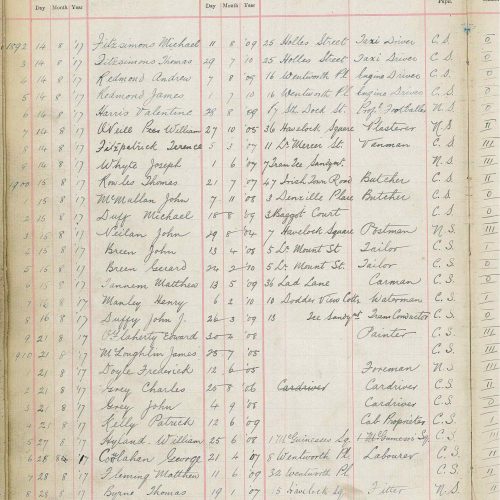 Day Month Year Day Month Year Pupil.
1892 14 8 '17 Fitzsimons Michael 11 8 '09 25 Holles Street Taxi Driver C.S. 0
3 14 8 '17 Fitzsimons Thomas 29 7 '10 25 Holles Street Taxi Driver C.S. 0
4 14 8 '17 Redmond Andrew 7 8 '08 16 Wentworth Pl. Engine Driver C.S.
5 14 8 '17 Redmond James 7 '10 16 Wentworth Pl. Engine Driver C.S. 0
6 14 8 '17 Harris Valentine 28 8 '09 17 Sth. Dock St. Prof. Footballer N.S. 0
7 14 8 '17 O'Neill William 27 10 '05 36 Havelock Square Plasterer N.S.
14 8 '17 Fitzpatrick Terence 5 3 '07 11 Lr. Mercer St. Vanman C.S. III
14 8 '17 Whyte Joseph 1 6 '07 7 Sandymt. N.S. III
1900 15 8 '17 Rowles Thomas 21 7 '07 47 Irish Town Road Butcher C.S.
15 8 '17 McMullan John 7 11 '08 3 Denzille Place Butcher C.S.
15 8 '17 Duff Michael 18 8 '09 3 Baggot Court C.S. 0
15 8 '17 Neilan John 29 8 '04 7 Havelock Square Postman N.S. III
15 8 '17 Breen John 13 4 '08 5 Lr. Mount St. Tailor C.S.
5 15 8 '17 Breen Gerard 24 2 '10 5 Lr. Mount St. Tailor C.S. 0
8 '17 Matthew 13 5 '09 36 Lad Lane Carman C.S. 0
7 16 8 '17 Manley Henry 6 2 '10 10 Dodder View Cotts. Waterman C.S.
8 16 8 '17 Duffy John J. 26 3 '09 13 Sandymt. Tram Conductor C.S. 0
9 21 8 '17 O'Flaherty Edward 30 4 '08 Painter C.S.
1910 21 8 '17 McLoughlin James 25 7 '05 C.S.
21 8 '17 Doyle Frederick 12 6 '05 Foreman N.S. III
21 8 '17 Grey Charles 25 8 '06 Cardriver Cardriver C.S.
3 21 8 '17 Grey John 4 9 '08 Cardriver C.S.
4 21 8 '17 Kelly Patrick 12 6 '09 Cab Proprietor C.S. I
5 27 8 '17 Hyland William 25 6 '08 1 McGuinesses Sq. C.S. III
6 28 8 '17 Callahan George 21 4 '07 8 Wentworth Pl. Labourer C.S.
7 28 8 '17 Fleming Matthew 11 6 '09 32 Wentworth Pl. C.S.
8 28 8 '17 Byrne Thomas 19 1 '07 5 Havelock Sq. Fitter N.S.